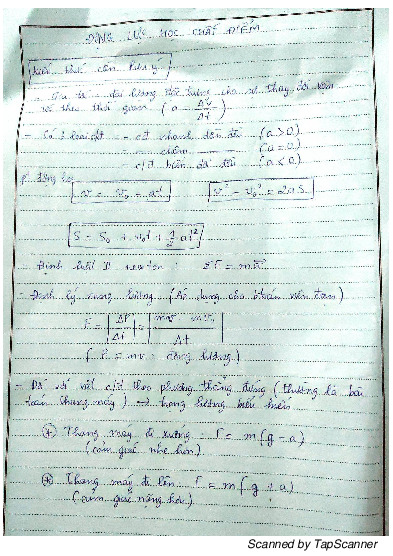 ĐỘNG LỰC HỌC CHẤT ĐIỂM
kiến thức cần lưu ý
Gia tốc: đại lượng đặc trưng cho sự thay đổi vận
tốc theo thời gian (a = Δv/Δt)
- Có 3 loại cđ - cđ nhanh dần đều (a > 0)
chậm (a = 0)
c/đ biến đổi đều (a < 0)
v - v₀ = at v² - v₀² = 2aS
S = S₀ + v₀t + 1/2 at²
- Định luật II newton ΣF = ma
- Định lý xung lượng (Áp dụng cho toán va chạm)
F = |ΔP/Δt| = |mv - mv₀ / Δt|
( P = mv = động lượng )
- Đối với vật c/đ theo phương thẳng đứng (thường là bài
toán thang máy) → trọng lượng biểu kiến
⊛ Thang máy đi xuống F = m(g - a)
(cảm giác nhẹ hơn)
⊛ Thang máy đi lên F = m(g + a)
(cảm giác nặng hơn)
Scanned by TapScanner